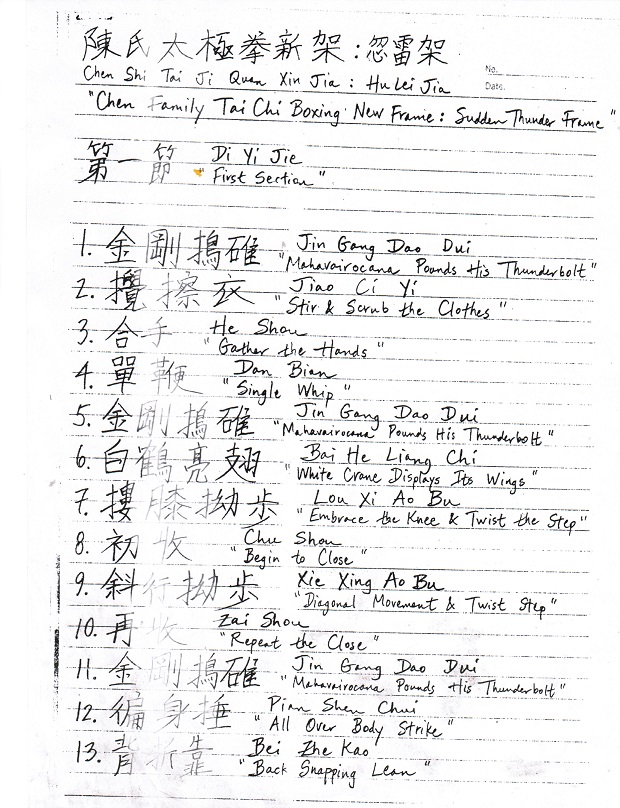 陳氏太極拳新架:忽雷架
No.
Chen Shi Tai Ji Quan Xin Jia : Hu Lei Jia
Date.
"Chen Family Tai Chi Boxing New Frame : Sudden Thunder Frame"
第一節 Di Yi Jie
"First Section"
1. 金剛搗碓 Jin Gang Dao Dui
"Mahavairocana Pounds His Thunderbolt"
2. 攪擦衣 Jiao Ci Yi
"Stir & Scrub the Clothes"
3. 合手 He Shou
"Gather the Hands"
4. 單鞭 Dan Bian
"Single Whip"
5. 金剛搗碓 Jin Gang Dao Dui
"Mahavairocana Pounds His Thunderbolt"
6. 白鶴亮翅 Bai He Liang Chi
"White Crane Displays Its Wings"
7. 摟膝拗步 Lou Xi Ao Bu
"Embrace the Knee & Twist the Step"
8. 初收 Chu Shou
"Begin to Close"
9. 斜行拗步 Xie Xing Ao Bu
"Diagonal Movement & Twist Step"
10. 再收 Zai Shou
"Repeat the Close"
11. 金剛搗碓 Jin Gang Dao Dui
"Mahavairocana Pounds His Thunderbolt"
12. 徧身捶 Pian Shen Chui
"All Over Body Strike"
13. 背折靠 Bei Zhe Kao
"Back Snapping Lean"